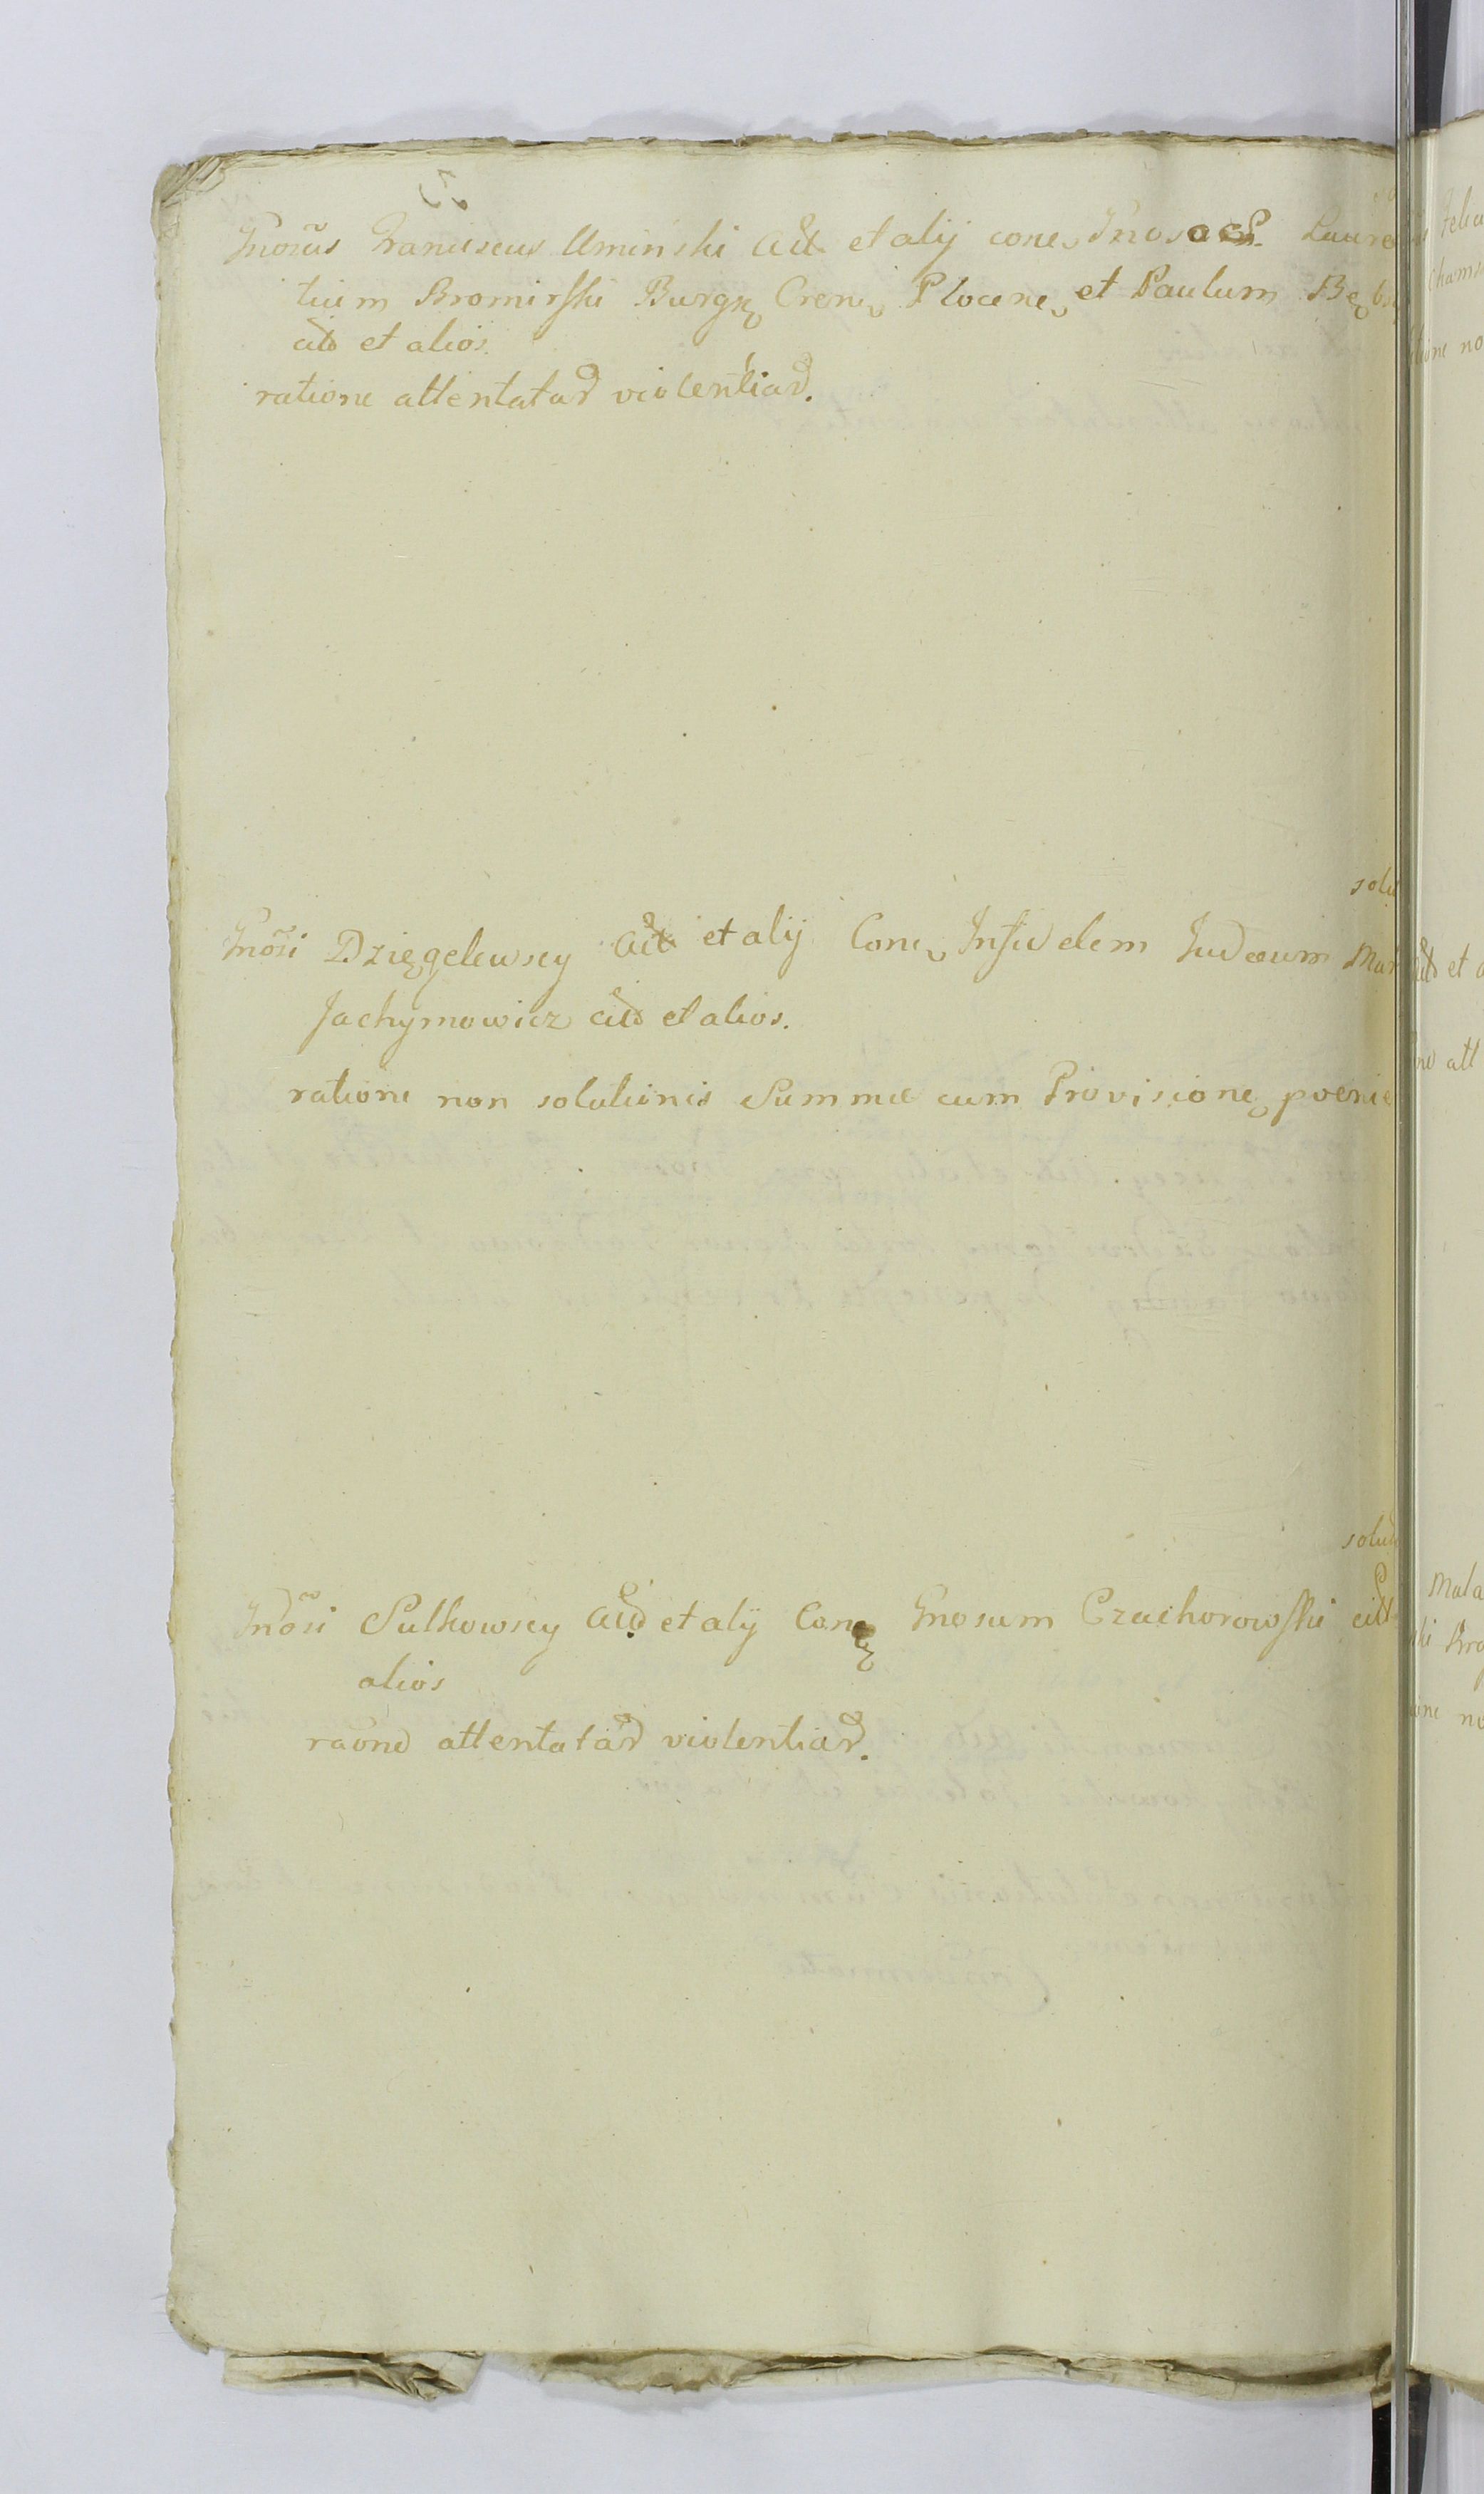 Gnosus Franciscus Uminski Act et alij cone Gnosos Laure
tium Bromirski Burgę Crene Plocene et Paulum
cito et alios.
ratione attentatae violentiae.
solu
Gnosi Dzięgelewscy Act et alij Cone Infidelem Judaeum Mar
Jachymowicz cito et alios.
ratione non solutionis Summae cum Provisione poenis
solu
Gnosi Sulkowscy Act et alij Cone Gnosum Czachorowski citt
alios
raone attentatae violentiae.